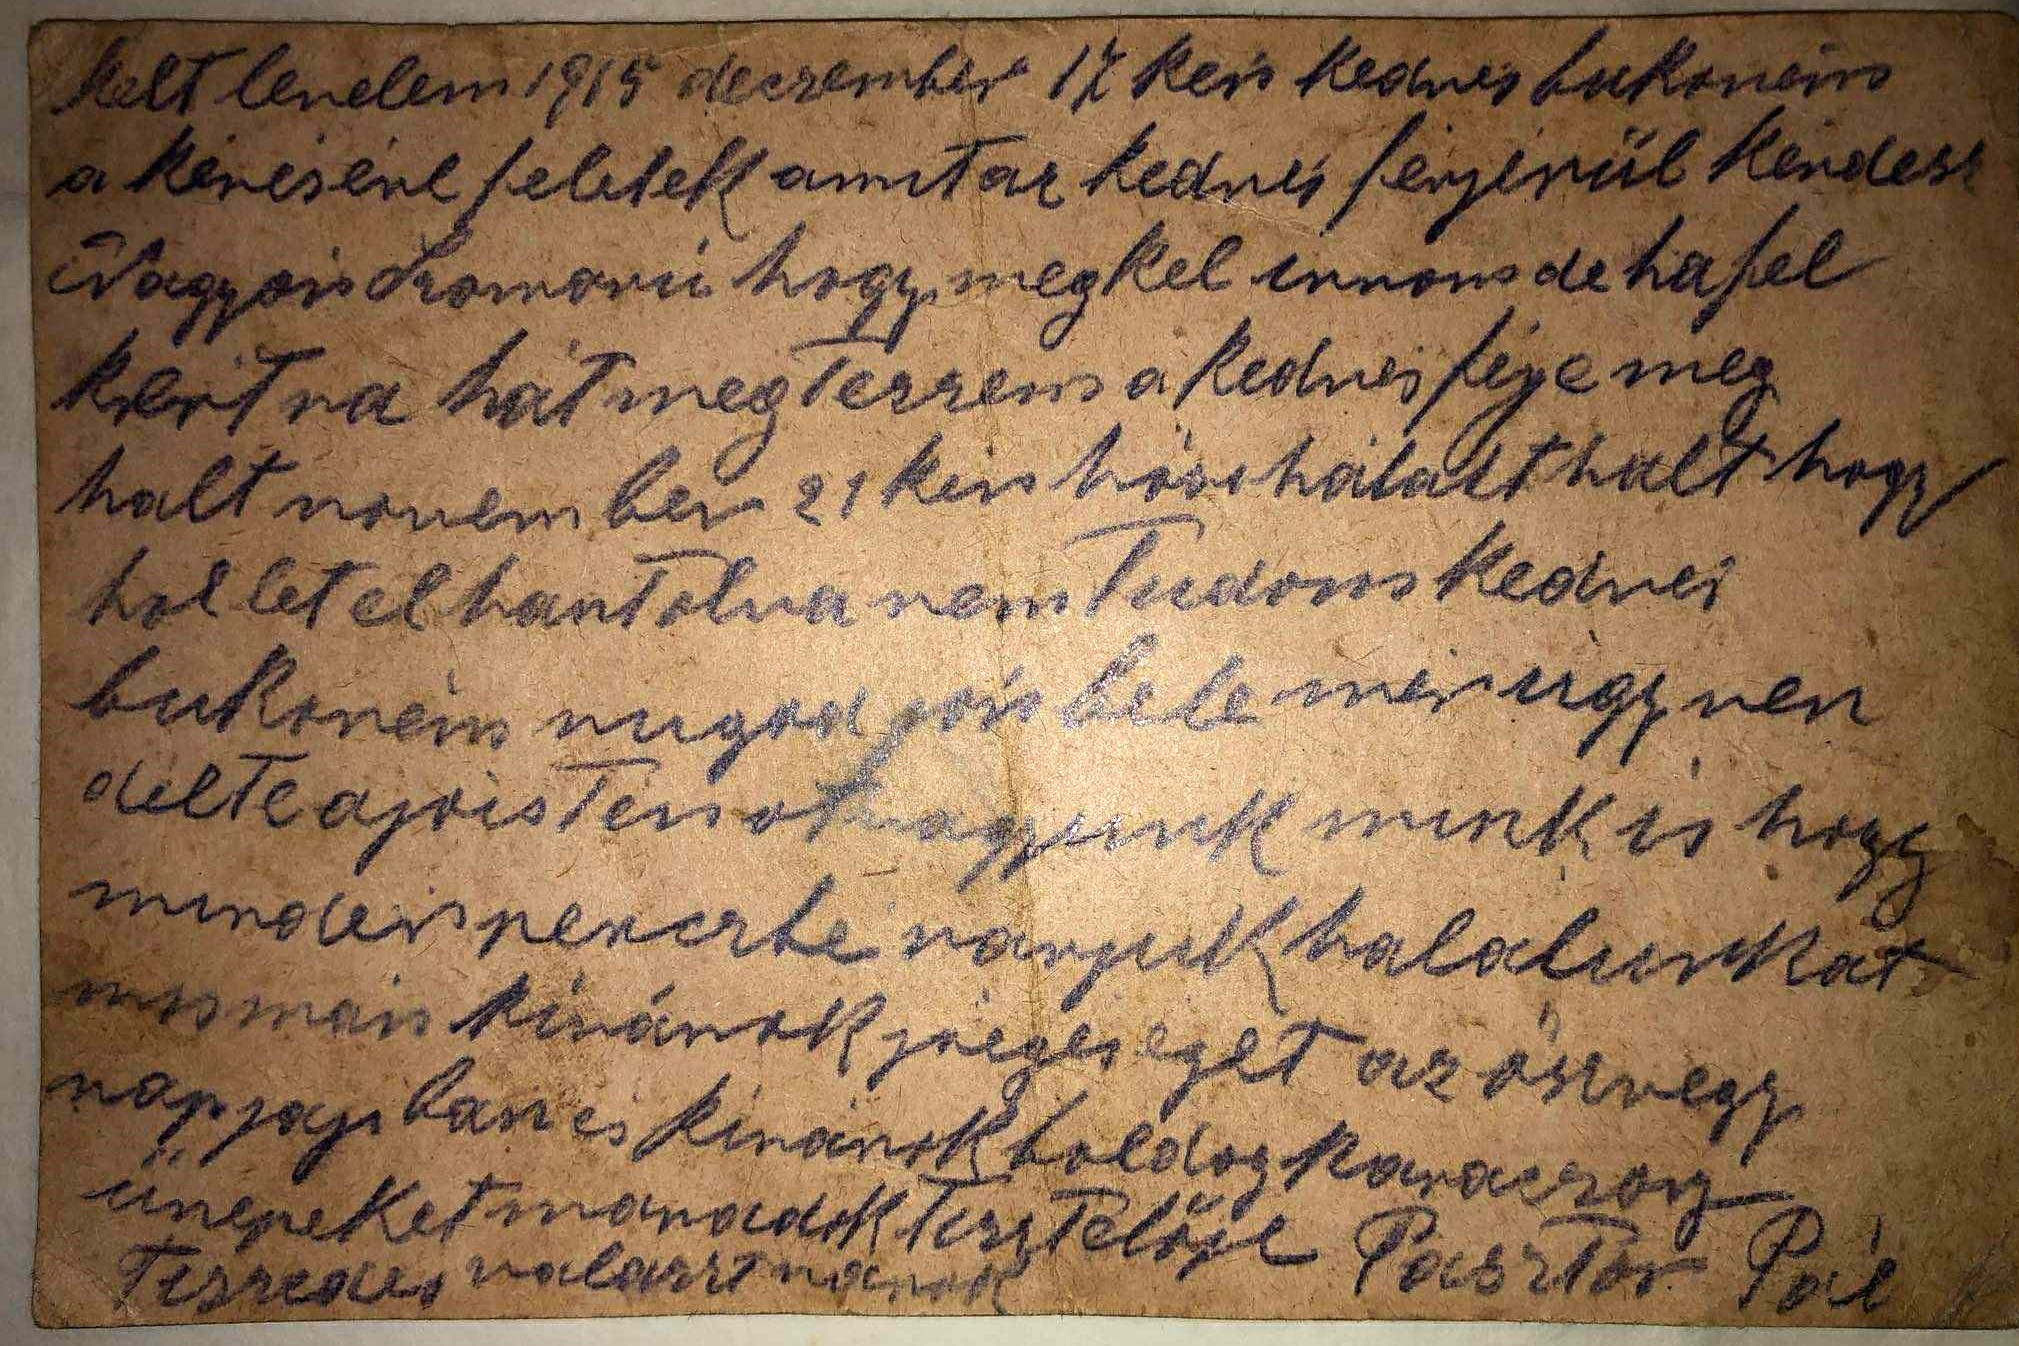 Kelt levelem 1915 deczember 17 kén kedves bukoném
a kérésére feletek amit az kedves férjérül kérdesz
Nagyon Szomorú hogy meg kel irnom de ha fel
kért rá hát meg teszem a kedves féje meg
halt november 21 kén hősi hálált halt hogy
hol let el hantolva nem tudom kedves
bukoném nugodjon bele mer úgy ren
delte a jó isten ot vagyunk mink is hogy
minden percrbe várjuk halálunkat
mos más kivánok jó egéségët az öszvegy
napjaji ban és kivánok boldog karaczony
ünepeket maradok tisztelője Pásztor Pál
Tiszedes választ várok